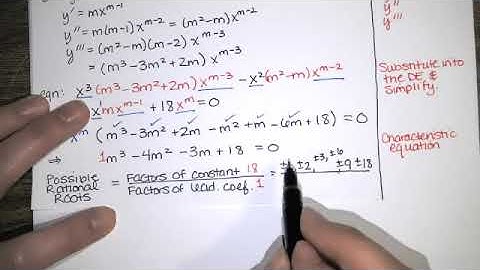 y' = mx^{m-1}
y'' = m(m-1)x^{m-2} = (m²-m)x^{m-2}
y''' = (m²-m)(m-2) x^{m-3}
= (m³-3m²+2m) x^{m-3}
y''
y'''
Eqn: x³(m³-3m²+2m)x^{m-3} - x²(m²-m)x^{m-2}
x¹mx^{m-1} + 18x^m = 0
Substitute into
the DE, &
simplify.
x^m (m³-3m²+2m -m²+m -6m+18) = 0
⇒ 1m³-4m²-3m+18 = 0
Characteristic
equation
Possible
Rational
ROOTS
= Factors of constant 18
Factors of lead. coef. 1
= ±2, ±3, ±6 ±9 ±18